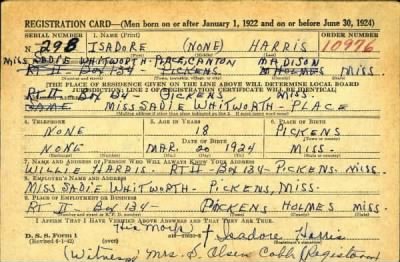 REGISTRATION CARD—(Men born on or after January 1, 1922 and on or before June 30, 1924)
SERIAL NUMBER 1. NAME (Print) ORDER NUMBER
N 298 ISADORE (NONE) HARRIS 10976
MISS SADIE WHITWORTH PLACE, CANTON MADISON
RT II - BOX 134 - PICKENS. HOLMES MISS.
[THE PLACE OF RESIDENCE GIVEN ON THE LINE ABOVE WILL DETERMINE LOCAL BOARD
JURISDICTION; LINE 2 OF REGISTRATION CERTIFICATE WILL BE IDENTICAL]
RT II - BOX 134 - PICKENS MISS.
SAME MISS SADIE WHITWORTH - PLACE
4. TELEPHONE 5. AGE IN YEARS 6. PLACE OF BIRTH
NONE 18 PICKENS
DATE OF BIRTH
NONE MAR. 20 1924 MISS.
7. NAME AND ADDRESS OF PERSON WHO WILL ALWAYS KNOW YOUR ADDRESS
WILLIE HARRIS. RT II - BOX 134 - PICKENS. MISS.
8. EMPLOYER'S NAME AND ADDRESS
MISS SADIE WHITWORTH - PICKENS, MISS.
9. PLACE OF EMPLOYMENT OR BUSINESS
RT II - BOX 134 - PICKENS HOLMES MISS.
I AFFIRM THAT I HAVE VERIFIED ABOVE ANSWERS AND THAT THEY ARE TRUE.
D. S. S. Form 1
(Revised 6-1-42)
His Mark + Isadore Harris
(Witness) Mrs. S. Olsen Cobb (Registrar)